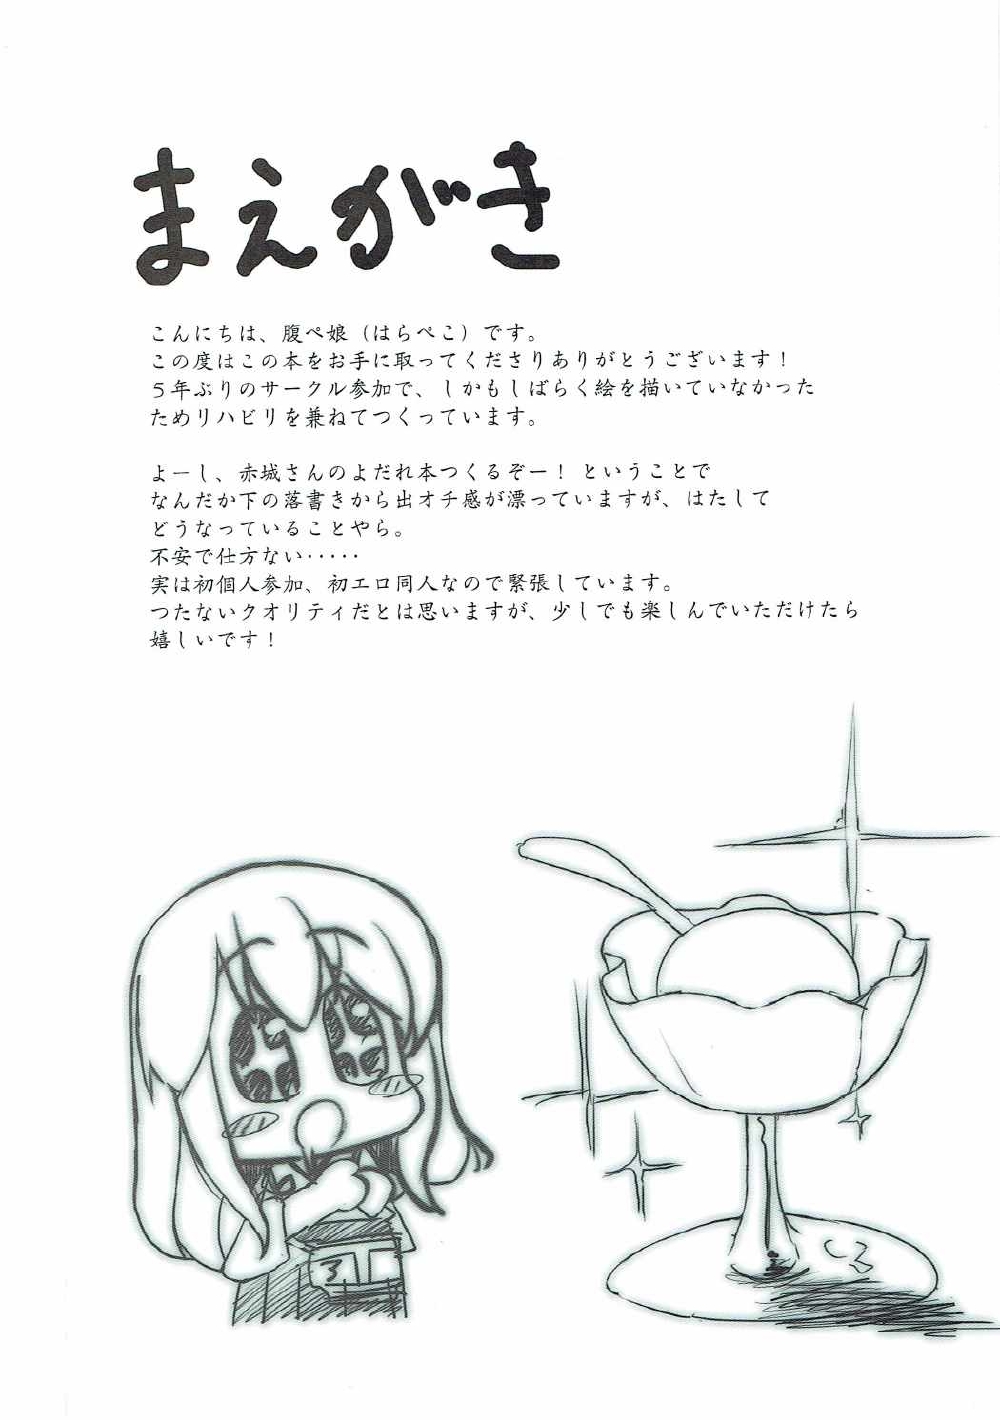 まえがき
こんにちは、腹ペ娘（はらぺこ）です。
この度はこの本をお手に取ってくださりありがとうございます！
５年ぶりのサークル参加で、しかもしばらく絵を描いていなかった
ためリハビリを兼ねてつくっています。
よーし、赤城さんのよだれ本つくるぞー！ ということで
なんだか下の落書きから出オチ感が漂っていますが、はたして
どうなっていることやら。
不安で仕方ない‥‥‥
実は初個人参加、初エロ同人なので緊張しています。
つたないクオリティだとは思いますが、少しでも楽しんでいただけたら
嬉しいです！
ア